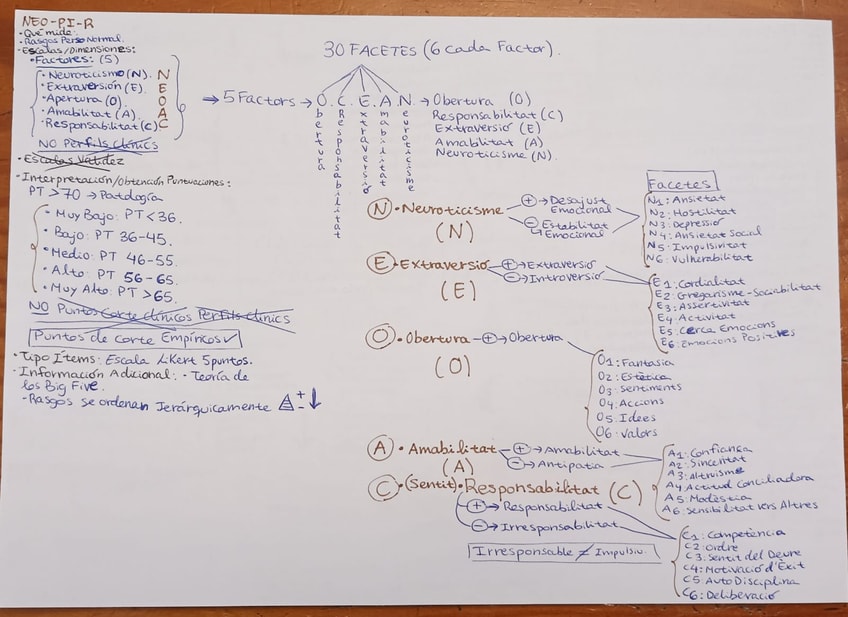 NEO-PI-R
• Qué mide:
Rasgos Perso Normal.
• Escalas/Dimensiones:
• Factores: (5)
• Neuroticismo (N). N
• Extraversión (E). E
• Apertura (O). O
• Amabilitat (A). A
• Responsabilitat (C) C
NO Perfils Clínics
• Escalas Validez
• Interpretación/Obtención Puntuaciones:
PT > 70 → Patología
• Muy Bajo: PT < 36.
• Bajo: PT 36-45.
• Medio: PT 46-55.
• Alto: PT 56-65.
• Muy Alto: PT > 65.
NO Puntos Corte Clínicos Perfils Clínics
Puntos de Corte Empíricos ✓
• Tipo Ítems: Escala Likert 5 puntos.
• Información Adicional: • Teoría de
los Big Five.
• Rasgos se ordenan Jerárquicamente + - ↓
30 FACETES (6 cada Factor).
⇒ 5 Factors → O. C. E. A. N. → Obertura (O)
Responsabilitat (C)
Extraversió (E)
Amabilitat (A)
Neuroticisme (N).
Obertura
Responsabilitat
Extraversió
Amabilitat
Neuroticisme
Facetes
N • Neuroticisme
(N)
+ → Desajust
Emocional
- Estabilitat
↳ Emocional
N1: Ansietat
N2: Hostilitat
N3: Depressió
N4: Ansietat Social
N5: Impulsivitat
N6: Vulnerabilitat
E • Extraversió
(E)
+ → Extraversió
- → Introversió
E1: Cordialitat
E2: Gregarisme-Sociabilitat
E3: Assertivitat
E4: Activitat
E5: Cerca Emocions
E6: Emocions Positives
O • Obertura + → Obertura
(O)
O1: Fantasia
O2: Estètica
O3: Sentiments
O4: Accions
O5: Idees
O6: Valors
A • Amabilitat
(A)
+ → Amabilitat
- → Antipatia
A1: Confiança
A2: Sinceritat
A3: Altruisme
A4: Actitud Conciliadora
A5: Modèstia
A6: Sensibilitat vers Altres
C • (Sentit) • Responsabilitat (C)
+ → Responsabilitat
- → Irresponsabilitat
Irresponsable ≠ Impulsiu.
C1: Competència
C2: Ordre
C3: Sentit del Deure
C4: Motivació d'Èxit
C5: AutoDisciplina
C6: Deliberació